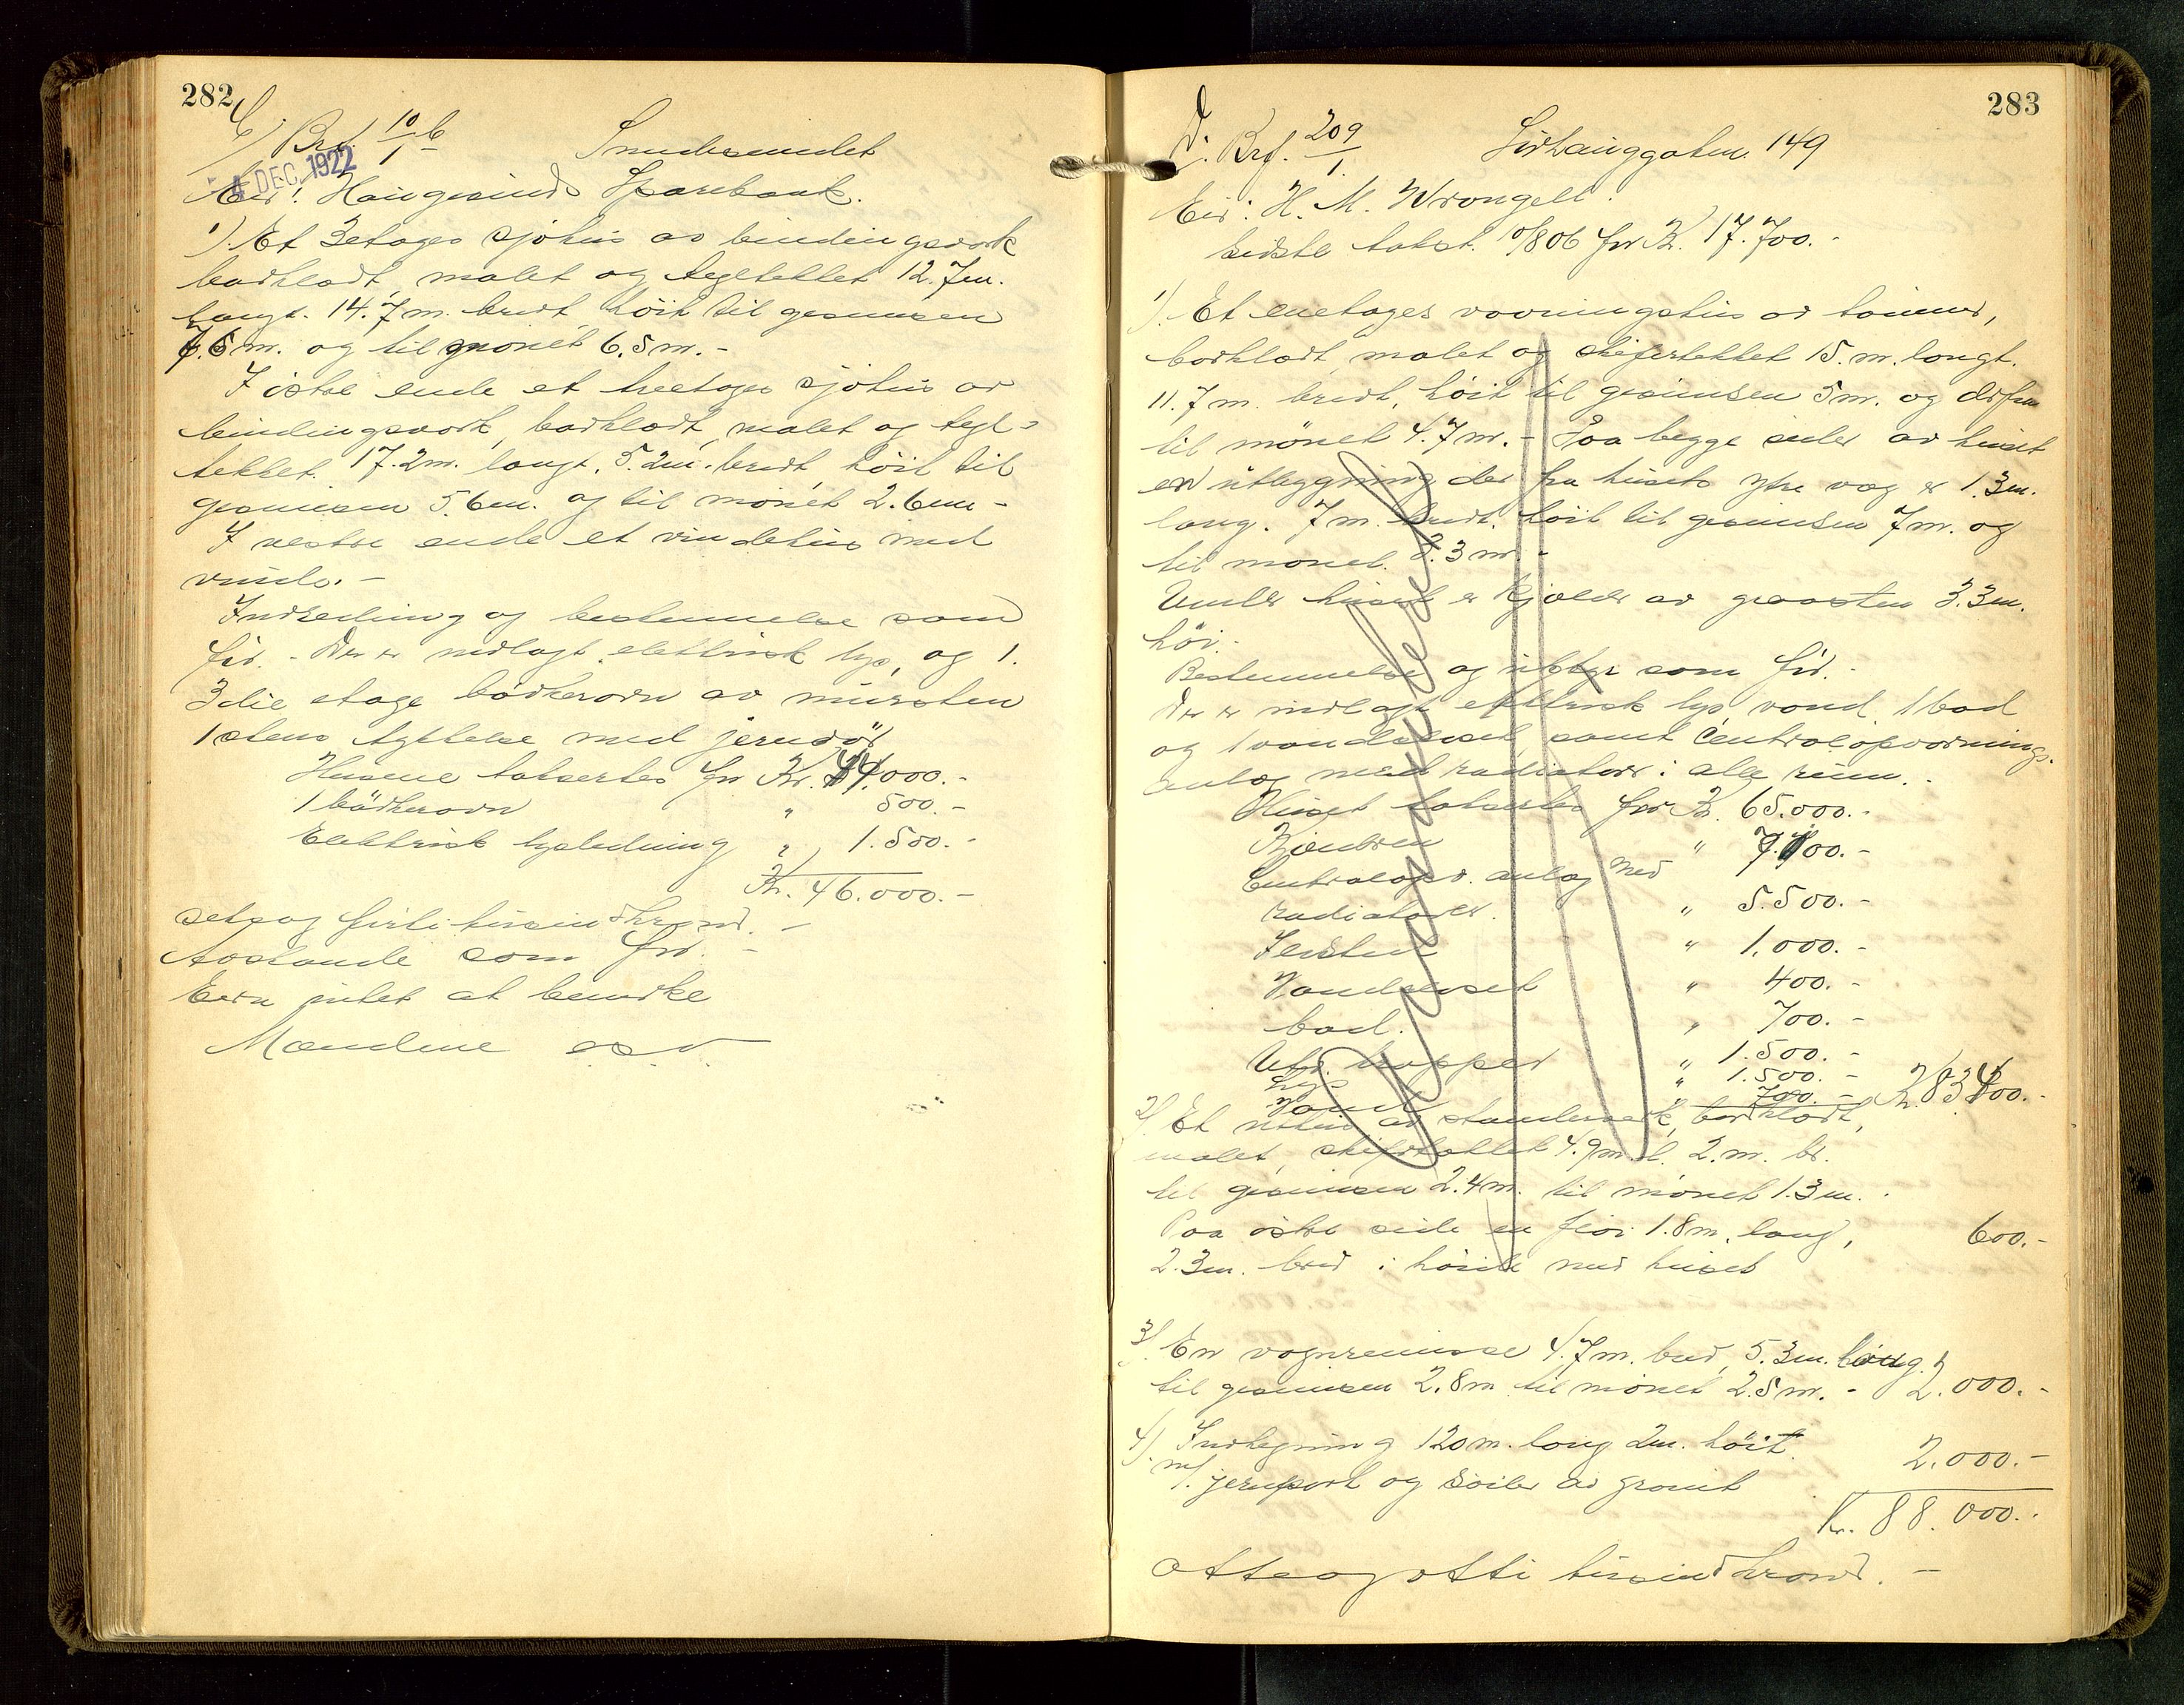 282
C) Brf. 10b/1 Smedasundet
4 DEC. 1922
Eier: Haugesunds Sparebank.
1) Et 3etages sjøhus av bindingsverk
bordklædt, malet og tegltekket 12.7m.
langt. 14.7m. bredt, høit til gesimsen
7.6m. og til mønet 6.5m.-
I østre ende et treetages sjøhus av
bindingsverk, bordklædt, malet og tegl-
tekket. 17.2m. langt. 5.2m. bredt, høit til
gesimsen 5.6m. og til mønet 2.6m-
I vestre ende et vindehus med
vinde.-
Indredning og bestemmelse som
før. - Der er indlagt elektrisk lys, og i
3die etage bødkerovn av mursten
1 stens tykkelse med jerndør
Husene takseres for Kr. 44.000.-
1 bødkerovn " 500.-
Elektrisk lysledning " 1.500.-
Kr. 46.000.-
seksogførti tusind kroner. -
Avstande som før. -
Eieren intet at bemerke
Mændene
283
D. Brf. 209/1. Sørhauggaten 149
Eier: H. M. Wrangell.
sidste takst. 10/8 06 for Kr. 17.700.-
1). Et enetages vaaningshus av tømmer,
bordklædt, malet og skifertekket 15.m. langt.
11.7m. bredt, høit til gesimsen 5m. og derfra
til mønet 4.7m.- Paa begge sider av huset
en utbygning der fra husets ytre væg er 1.3m.
lang. 7m. bredt. høit til gesimsen 7m. og
til mønet 3.3m.-
Under huset er kjælder av graasten 3.3m.
høi.
Bestemmelse og utstyr som før.-
Der er indlagt elektrisk lys, vand, 1 bad
og 1 vandklosset, samt Centralopvarmnings-
anlæg med radiatorer i alle rum.-
Huset takseres for Kr. 65.000.-
Kjælderen " 7.100.-
Centralopv. anlæg med
radiatorer. " 5.500.-
" 1.000.-
Vandklosset " 400.-
bad. " 700.-
Utv. trapper " 1.500.-
Lys " 1.500.-
Vand " 700.- Kr. 83.400.-
2). Et uthus av stenderverk, bordklædt,
malet, skifertekket 4.9m. l. 2.m. br.
til gesimsen 2.4m. til mønet 1.3m..
Paa østre side en fløi 1.8m. lang, 600.-
2.3m. bred i høide med huset
3). En vognremisse 4.7m. bred, 5.3m. lang.
til gesimsen 2.8m til mønet 2.5m. - 2.000.-
4). Indhegning 120m. lang 2m. høit 2.000.-
m/. jernport og søiler av granit
Kr. 88.000.-
otteogotti tusind kroner. -